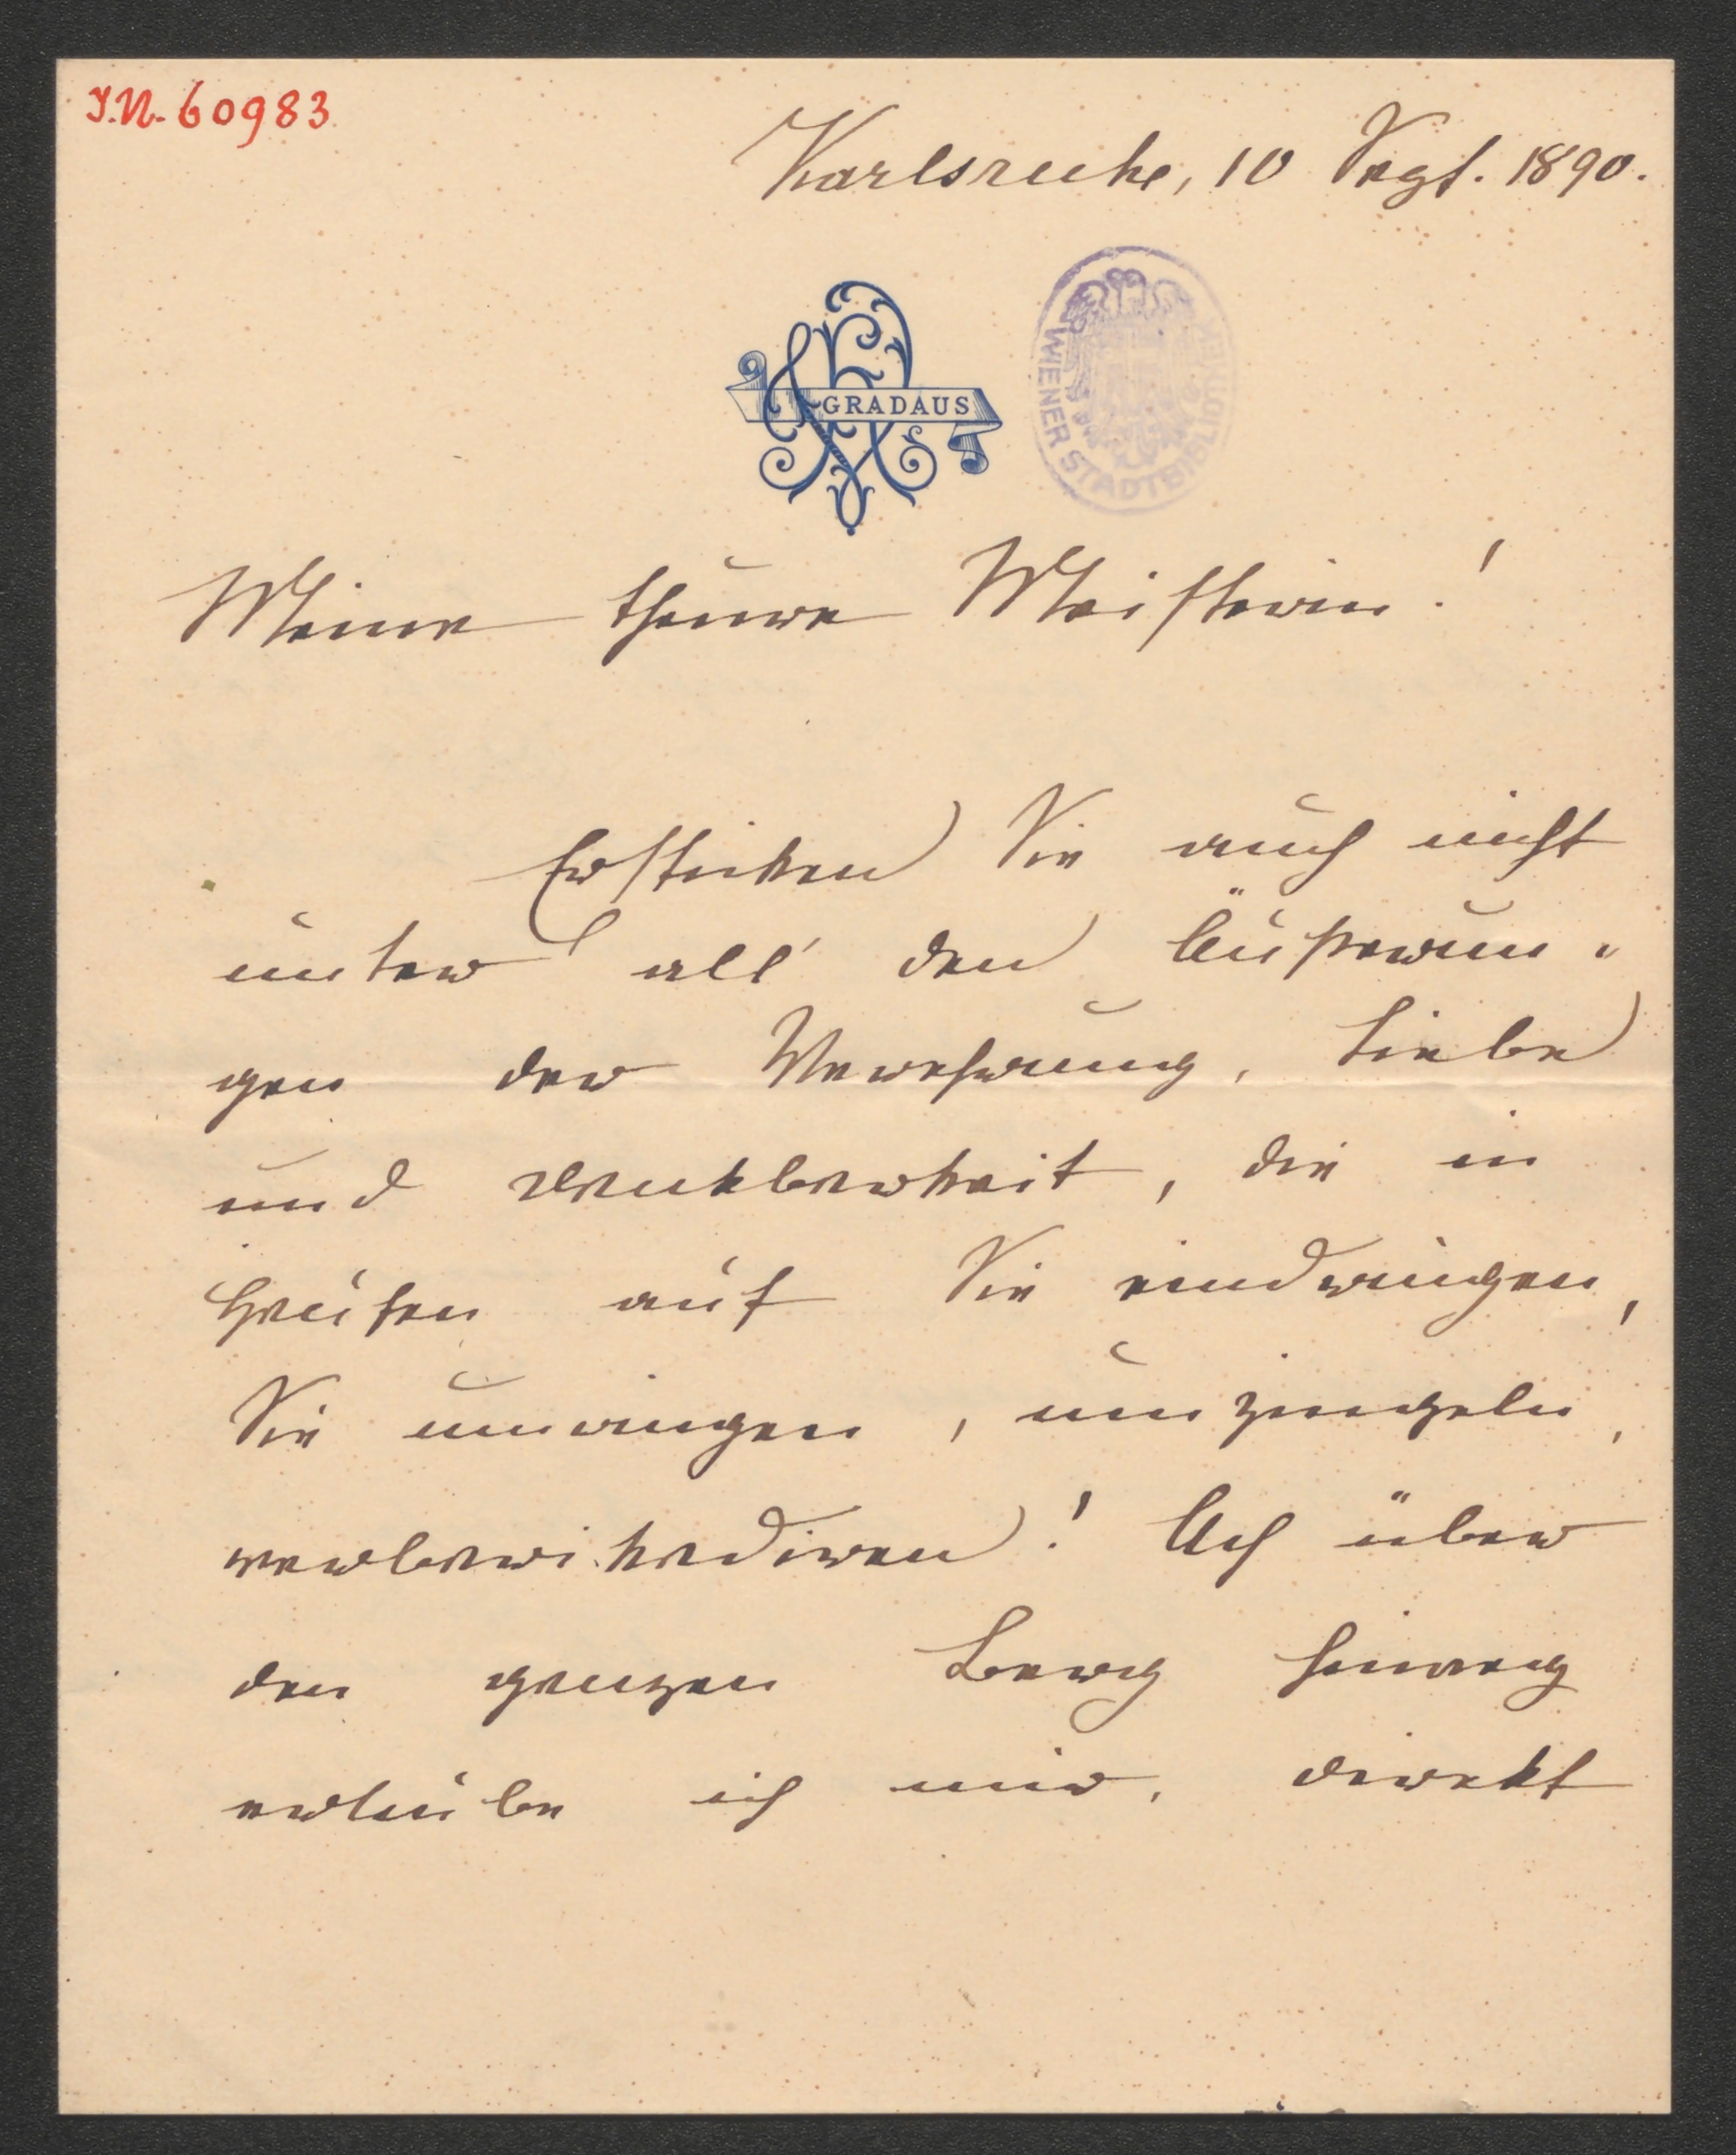 J.N. 60983
Karlsruhe, 10 Sept. 1890.
GRADAUS
WIENER STADTBIBLIOTHEK
Meine theure Meisterin!
Ersticken Sie auch nicht
unter all' den Äußerun-
gen der Verehrung, Liebe
und Dankbarkeit, die in
Haufen auf Sie eindringen,
Sie umringen, umzingeln,
verbarrikadiren! Ach über
den ganzen Berg hinweg
erlaube ich mir, direkt